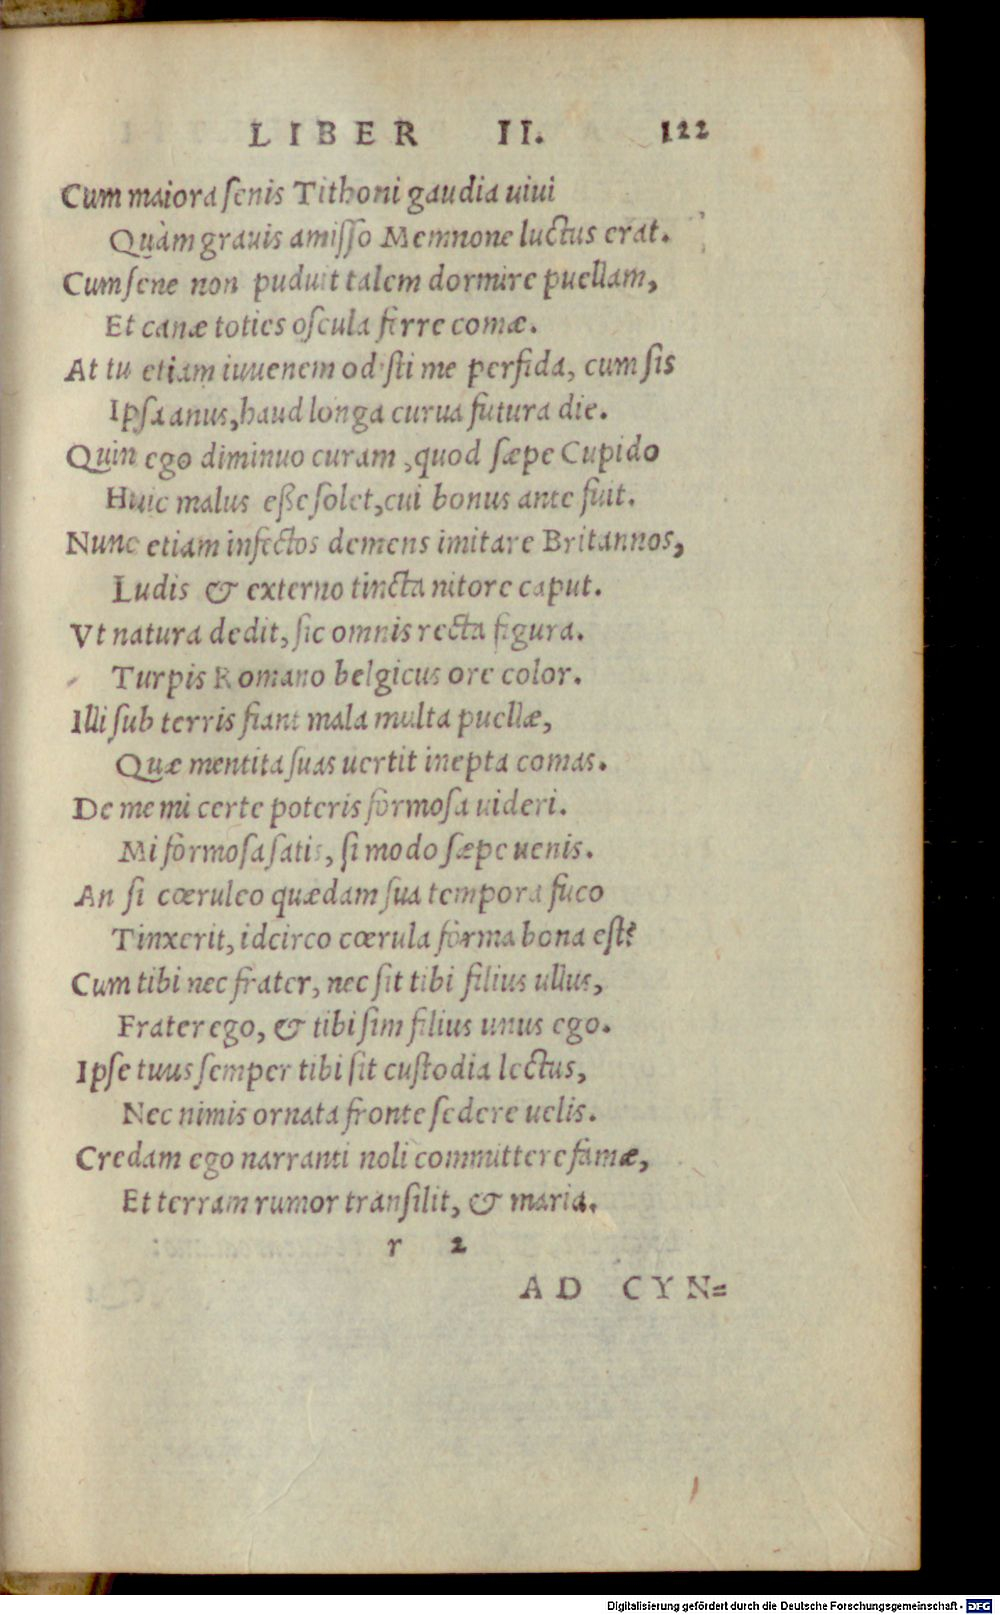 LIBER II. 122
Cum maiora senis Tithoni gaudia uiui
Quàm grauis amisso Memnone luctus erat.
Cum sene non puduit talem dormire puellam,
Et canæ toties oscula ferre comæ.
At tu etiam iuuenem odisti me perfida, cum sis
Ipsa anus, haud longa curua futura die.
Quin ego diminuo curam, quod sæpe Cupido
Huic malus eße solet, cui bonus ante fuit.
Nunc etiam infectos demens imitare Britannos,
Ludis & externo tincta nitore caput.
Vt natura dedit, sic omnis recta figura.
Turpis Romano belgicus ore color.
Illi sub terris fiant mala multa puellæ,
Quæ mentita suas uertit inepta comas.
De me mi certe poteris formosa uideri.
Mi formosa satis, si modo sæpe uenis.
An si cœruleo quædam sua tempora fuco
Tinxerit, idcirco cœrula forma bona est?
Cum tibi nec frater, nec sit tibi filius ullus,
Frater ego, & tibi sim filius unus ego.
Ipse tuus semper tibi sit custodia lectus,
Nec nimis ornata fronte sedere uelis.
Credam ego narranti noli committere famæ,
Et terram rumor transilit, & maria.
r 2
AD CYN=
Digitalisierung gefördert durch die Deutsche Forschungsgemeinschaft - DFG